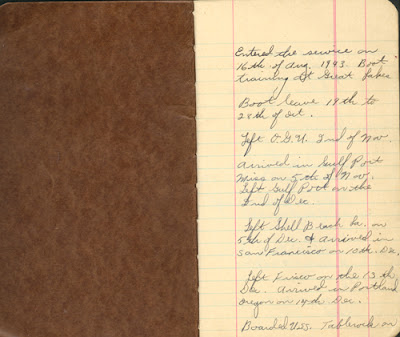 Entered the service on
16th of Aug. 1943. Boot
training at Great Lakes
Boot leave 19th to
28th of Oct.
Left O.G.U. 2nd of Nov.
Arrived in Gulf Port
Miss on 5th of Nov.
Left Gulf Port on the
2nd of Dec.
Left Shell Beach La. on
5th of Dec. & Arrived in
San Francisco on 10th. Dec.
Left Frisco on the 13th
Dec. Arrived in Portland
Oregon on 14th Dec.
Boarded U.S.S. on